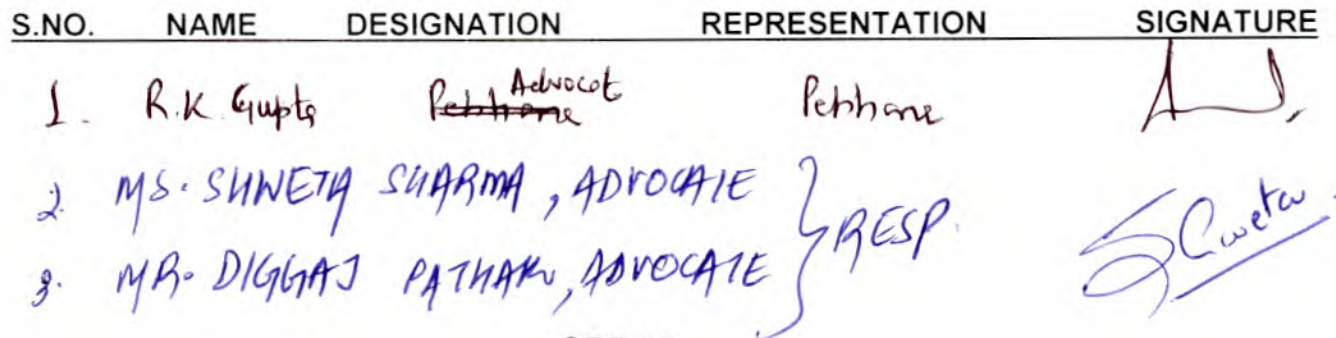 S.NO. NAME DESIGNATION REPRESENTATION SIGNATURE
1. R.K. Gupta Advocat Petitione
2. MS. SHWETA SHARMA, ADVOCATE } RESP. Shweta
3. MR. DIGGAJ PATHAK, ADVOCATE